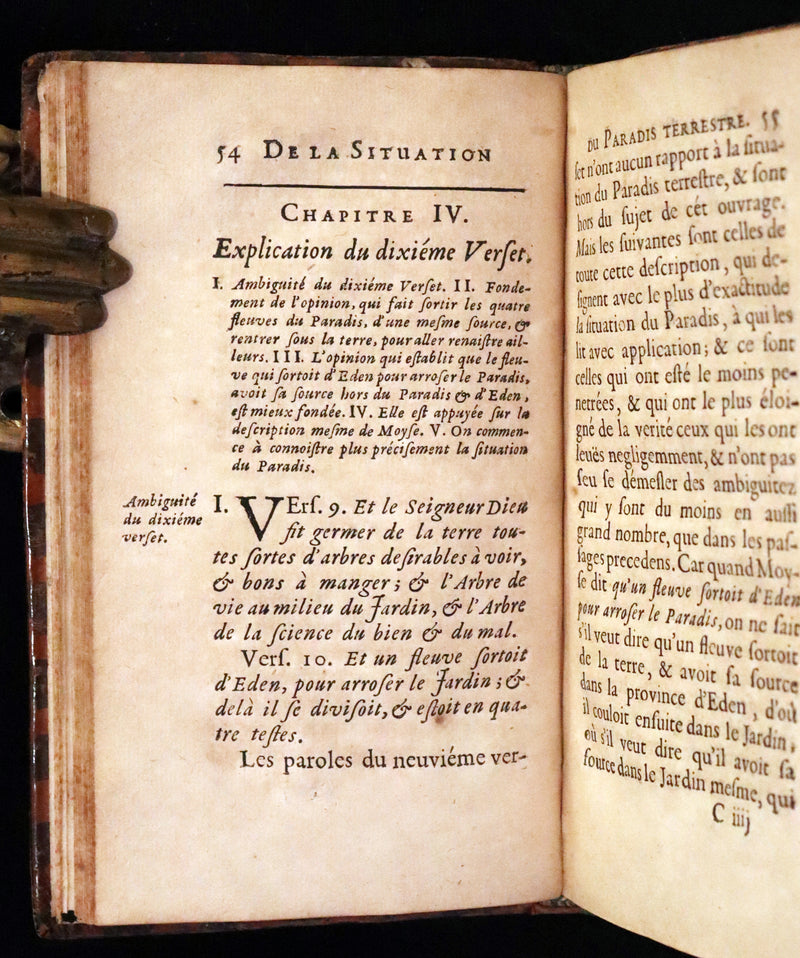 54 DE LA SITUATION
CHAPITRE IV.
Explication du dixiéme Verſet.
I. Ambiguité du dixiéme Verſet. II. Fonde-
ment de l'opinion, qui fait ſortir les quatre
fleuves du Paradis, d'une meſme ſource, &
rentrer ſous la terre, pour aller renaiſtre ail-
leurs. III. L'opinion qui eſtablit que le fleu-
ve qui ſortoit d'Eden pour arroſer le Paradis,
avoit ſa ſource hors du Paradis & d'Eden,
eſt mieux fondée. IV. Elle eſt appuyée ſur la
deſcription meſme de Moyſe. V. On commen-
ce à connoiſtre plus préciſement la ſituation
du Paradis.
Ambiguité
du dixiéme
verſet.
I. VErſ. 9. Et le Seigneur Dieu
fit germer de la terre tou-
tes ſortes d'arbres deſirables à voir,
& bons à manger ; & l'Arbre de
vie au milieu du Jardin, & l'Arbre
de la ſcience du bien & du mal.
Verſ. 10. Et un fleuve ſortoit
d'Eden, pour arroſer le Jardin ; &
delà il ſe diviſoit, & eſtoit en qua-
tre teſtes.
Les paroles du neuviéme ver-
DU PARADIS TERRESTRE. 55
ſet n'ont aucun rapport à la ſitua-
tion du Paradis terreſtre, & ſont
hors du ſujet de cét ouvrage.
Mais les ſuivantes ſont celles de
toute cette deſcription, qui de-
ſignent avec le plus d'exactitude
la ſituation du Paradis, à qui les
lit avec application ; & ce ſont
celles qui ont eſté le moins pe-
netrées, & qui ont le plus éloi-
gné de la verité ceux qui les ont
leuës negligemment, & n'ont pas
ſeu ſe démeſler des ambiguitez
qui y ſont du moins en auſſi
grand nombre, que dans les paſ-
ſages precedens. Car quand Moy-
ſe dit qu'un fleuve ſortoit d'Eden
pour arroſer le Paradis, on ne ſait
s'il veut dire qu'un fleuve ſortoit
de la terre, & avoit ſa ſource
dans la province d'Eden, d'où
il couloit enſuite dans le Jardin,
où s'il veut dire qu'il avoit ſa
ſource dans le Jardin meſme, qui
C iiij